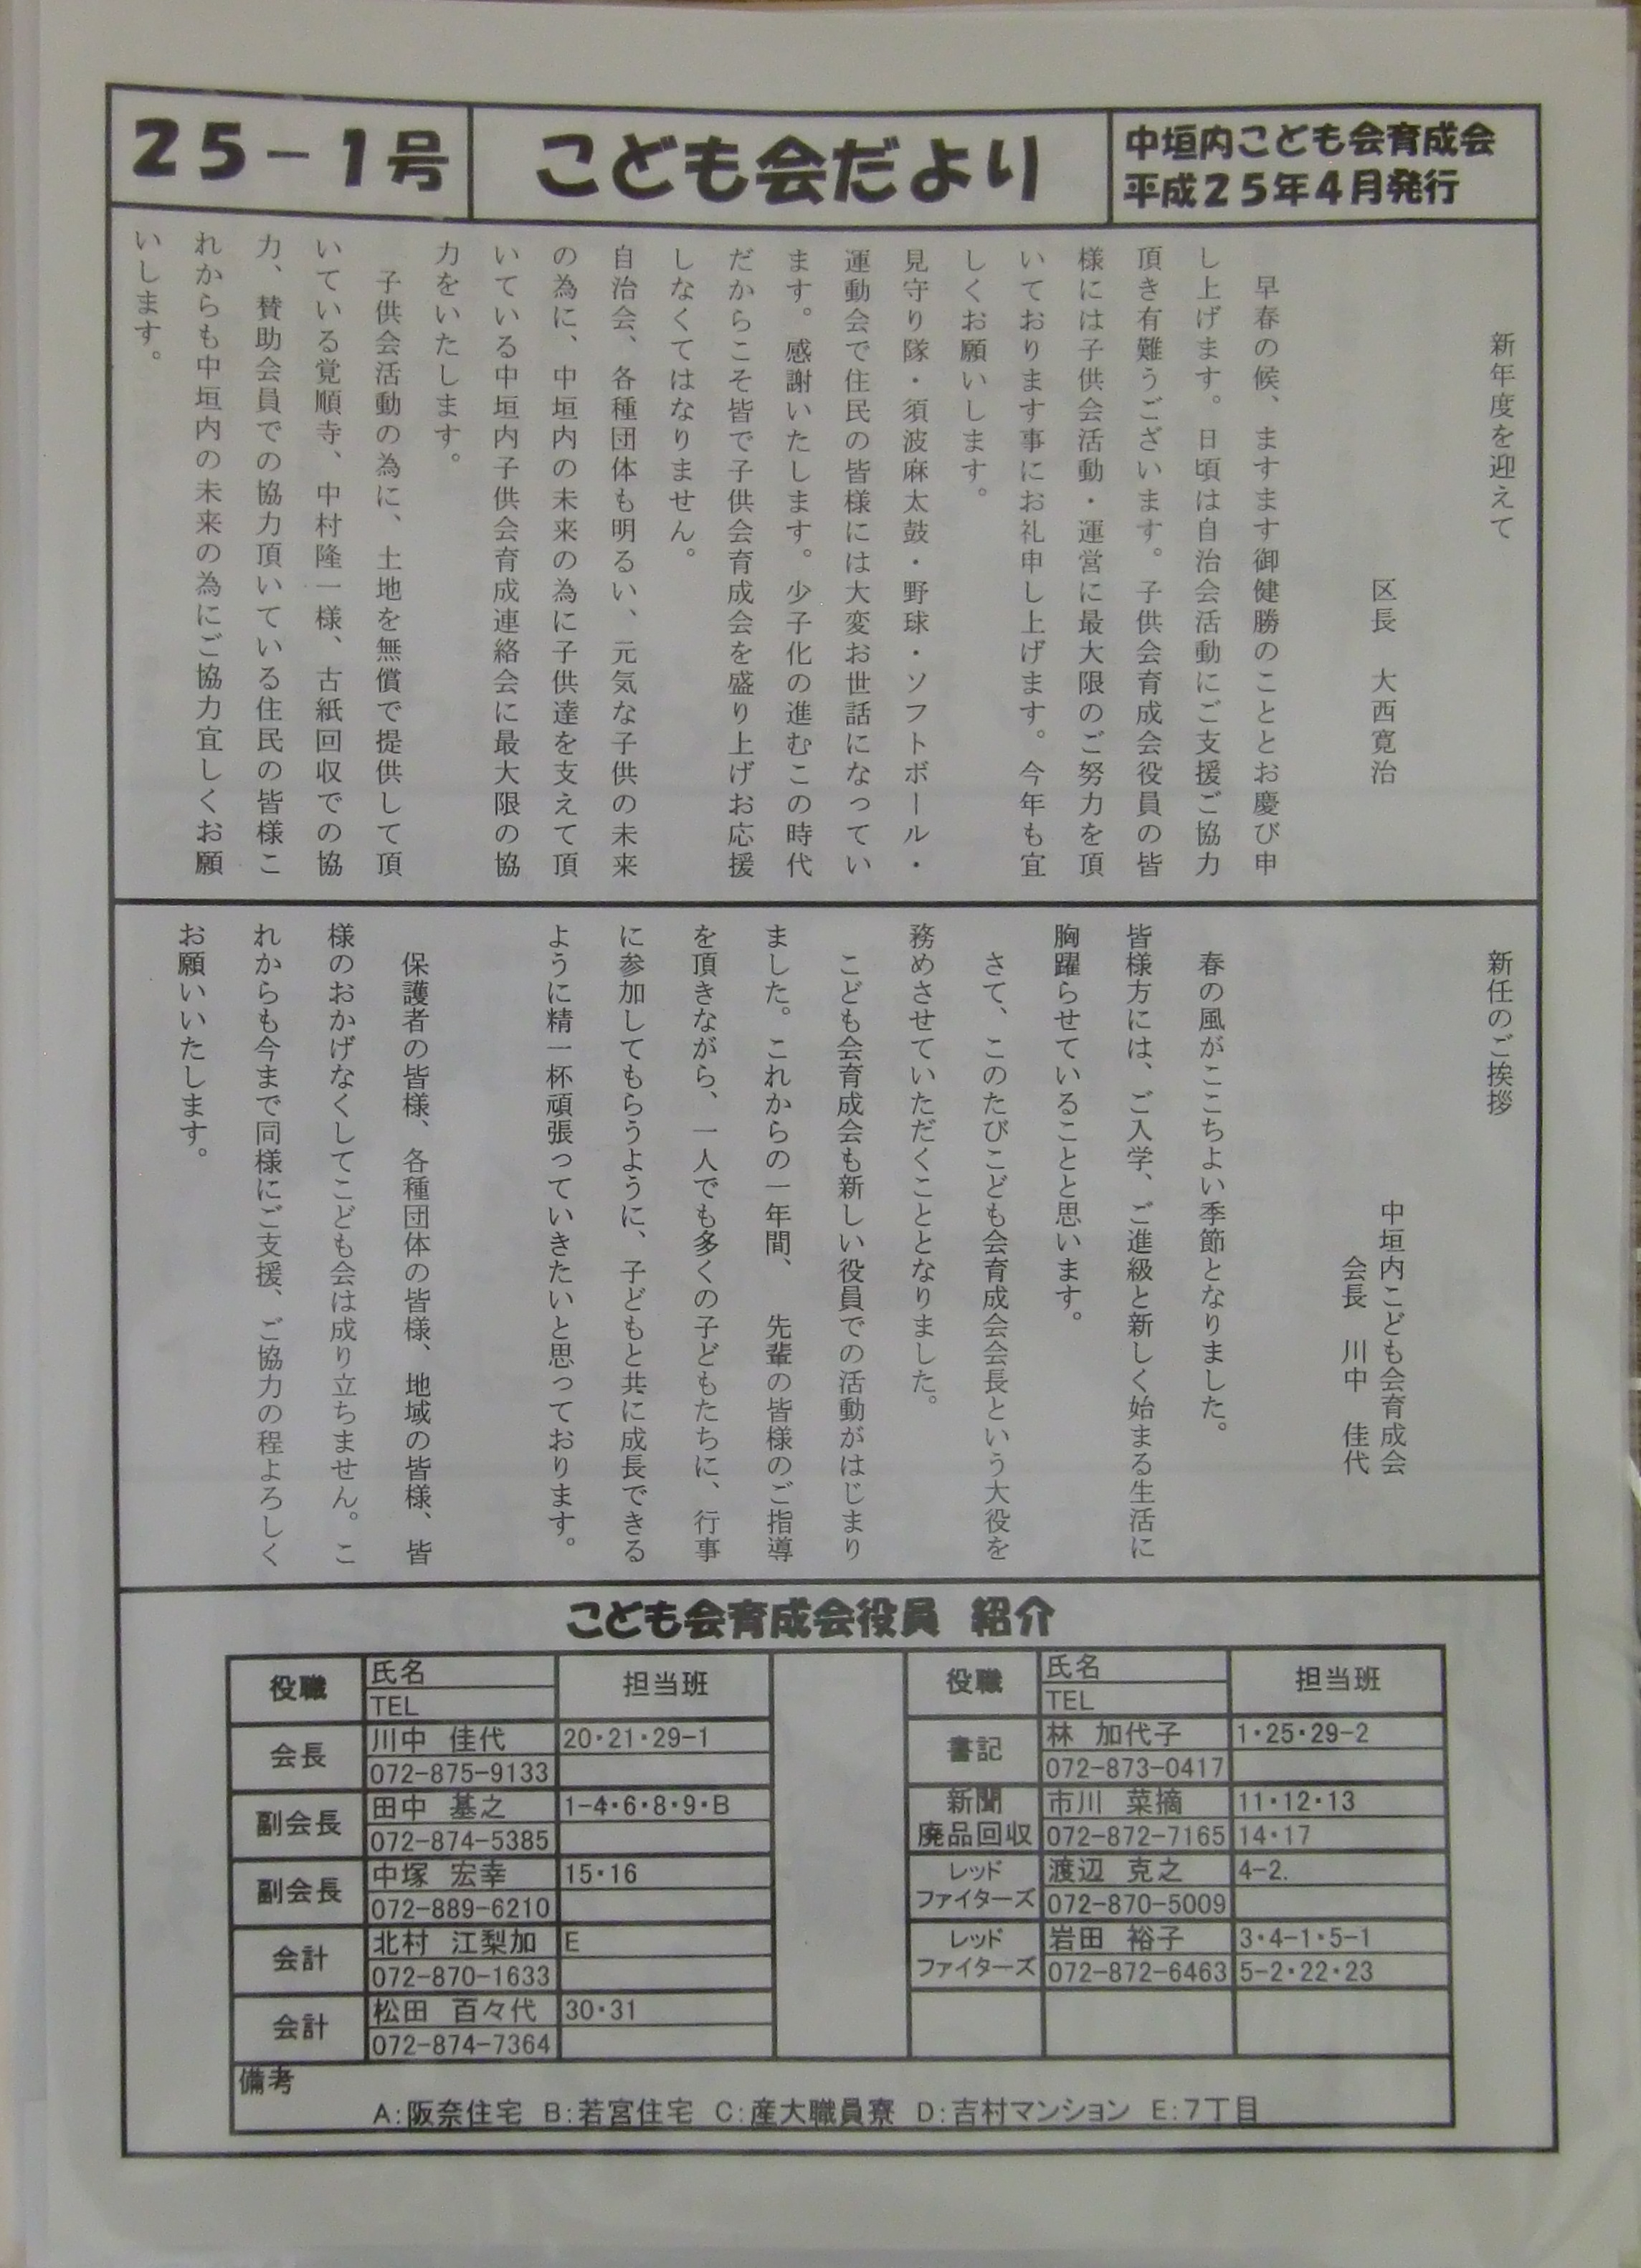 25－1号
こども会だより
中垣内こども会育成会
平成25年4月発行
新年度を迎えて
区長　大西寛治
早春の候、ますます御健勝のこととお慶び申
し上げます。日頃は自治会活動にご支援ご協力
頂き有難うございます。子供会育成会役員の皆
様には子供会活動・運営に最大限のご努力を頂
いております事にお礼申し上げます。今年も宜
しくお願いします。
見守り隊・須波麻太鼓・野球・ソフトボール・
運動会で住民の皆様には大変お世話になってい
ます。感謝いたします。少子化の進むこの時代
だからこそ皆で子供会育成会を盛り上げお応援
しなくてはなりません。
自治会、各種団体も明るい、元気な子供の未来
の為に、中垣内の未来の為に子供達を支えて頂
いている中垣内子供会育成連絡会に最大限の協
力をいたします。
子供会活動の為に、土地を無償で提供して頂
いている覚順寺、中村隆一様、古紙回収での協
力、賛助会員での協力頂いている住民の皆様こ
れからも中垣内の未来の為にご協力宜しくお願
いします。
新任のご挨拶
中垣内こども会育成会
会長　川中　佳代
春の風がここちよい季節となりました。
皆様方には、ご入学、ご進級と新しく始まる生活に
胸躍らせていることと思います。
さて、このたびこども会育成会会長という大役を
務めさせていただくこととなりました。
こども会育成会も新しい役員での活動がはじまり
ました。これからの一年間、　先輩の皆様のご指導
を頂きながら、一人でも多くの子どもたちに、行事
に参加してもらうように、子どもと共に成長できる
ように精一杯頑張っていきたいと思っております。
保護者の皆様、各種団体の皆様、地域の皆様、皆
様のおかげなくしてこども会は成り立ちません。こ
れからも今まで同様にご支援、ご協力の程よろしく
お願いいたします。
こども会育成会役員 紹介
役職 氏名 担当班
TEL
会長 川中　佳代 20・21・29-1
072-875-9133
副会長 田中　基之 1-4・6・8・9・B
072-874-5385
副会長 中塚　宏幸 15・16
072-889-6210
会計 北村　江梨加 E
072-870-1633
会計 松田　百々代 30・31
072-874-7364
役職 氏名 担当班
TEL
書記 林　加代子 1・25・29-2
072-873-0417
新聞 市川　菜摘 11・12・13
廃品回収 072-872-7165 14・17
レッド 渡辺　克之 4-2.
ファイターズ 072-870-5009
レッド 岩田　裕子 3・4-1・5-1
ファイターズ 072-872-6463 5-2・22・23
備考
A:阪奈住宅 B:若宮住宅 C:産大職員寮 D:吉村マンション E:7丁目